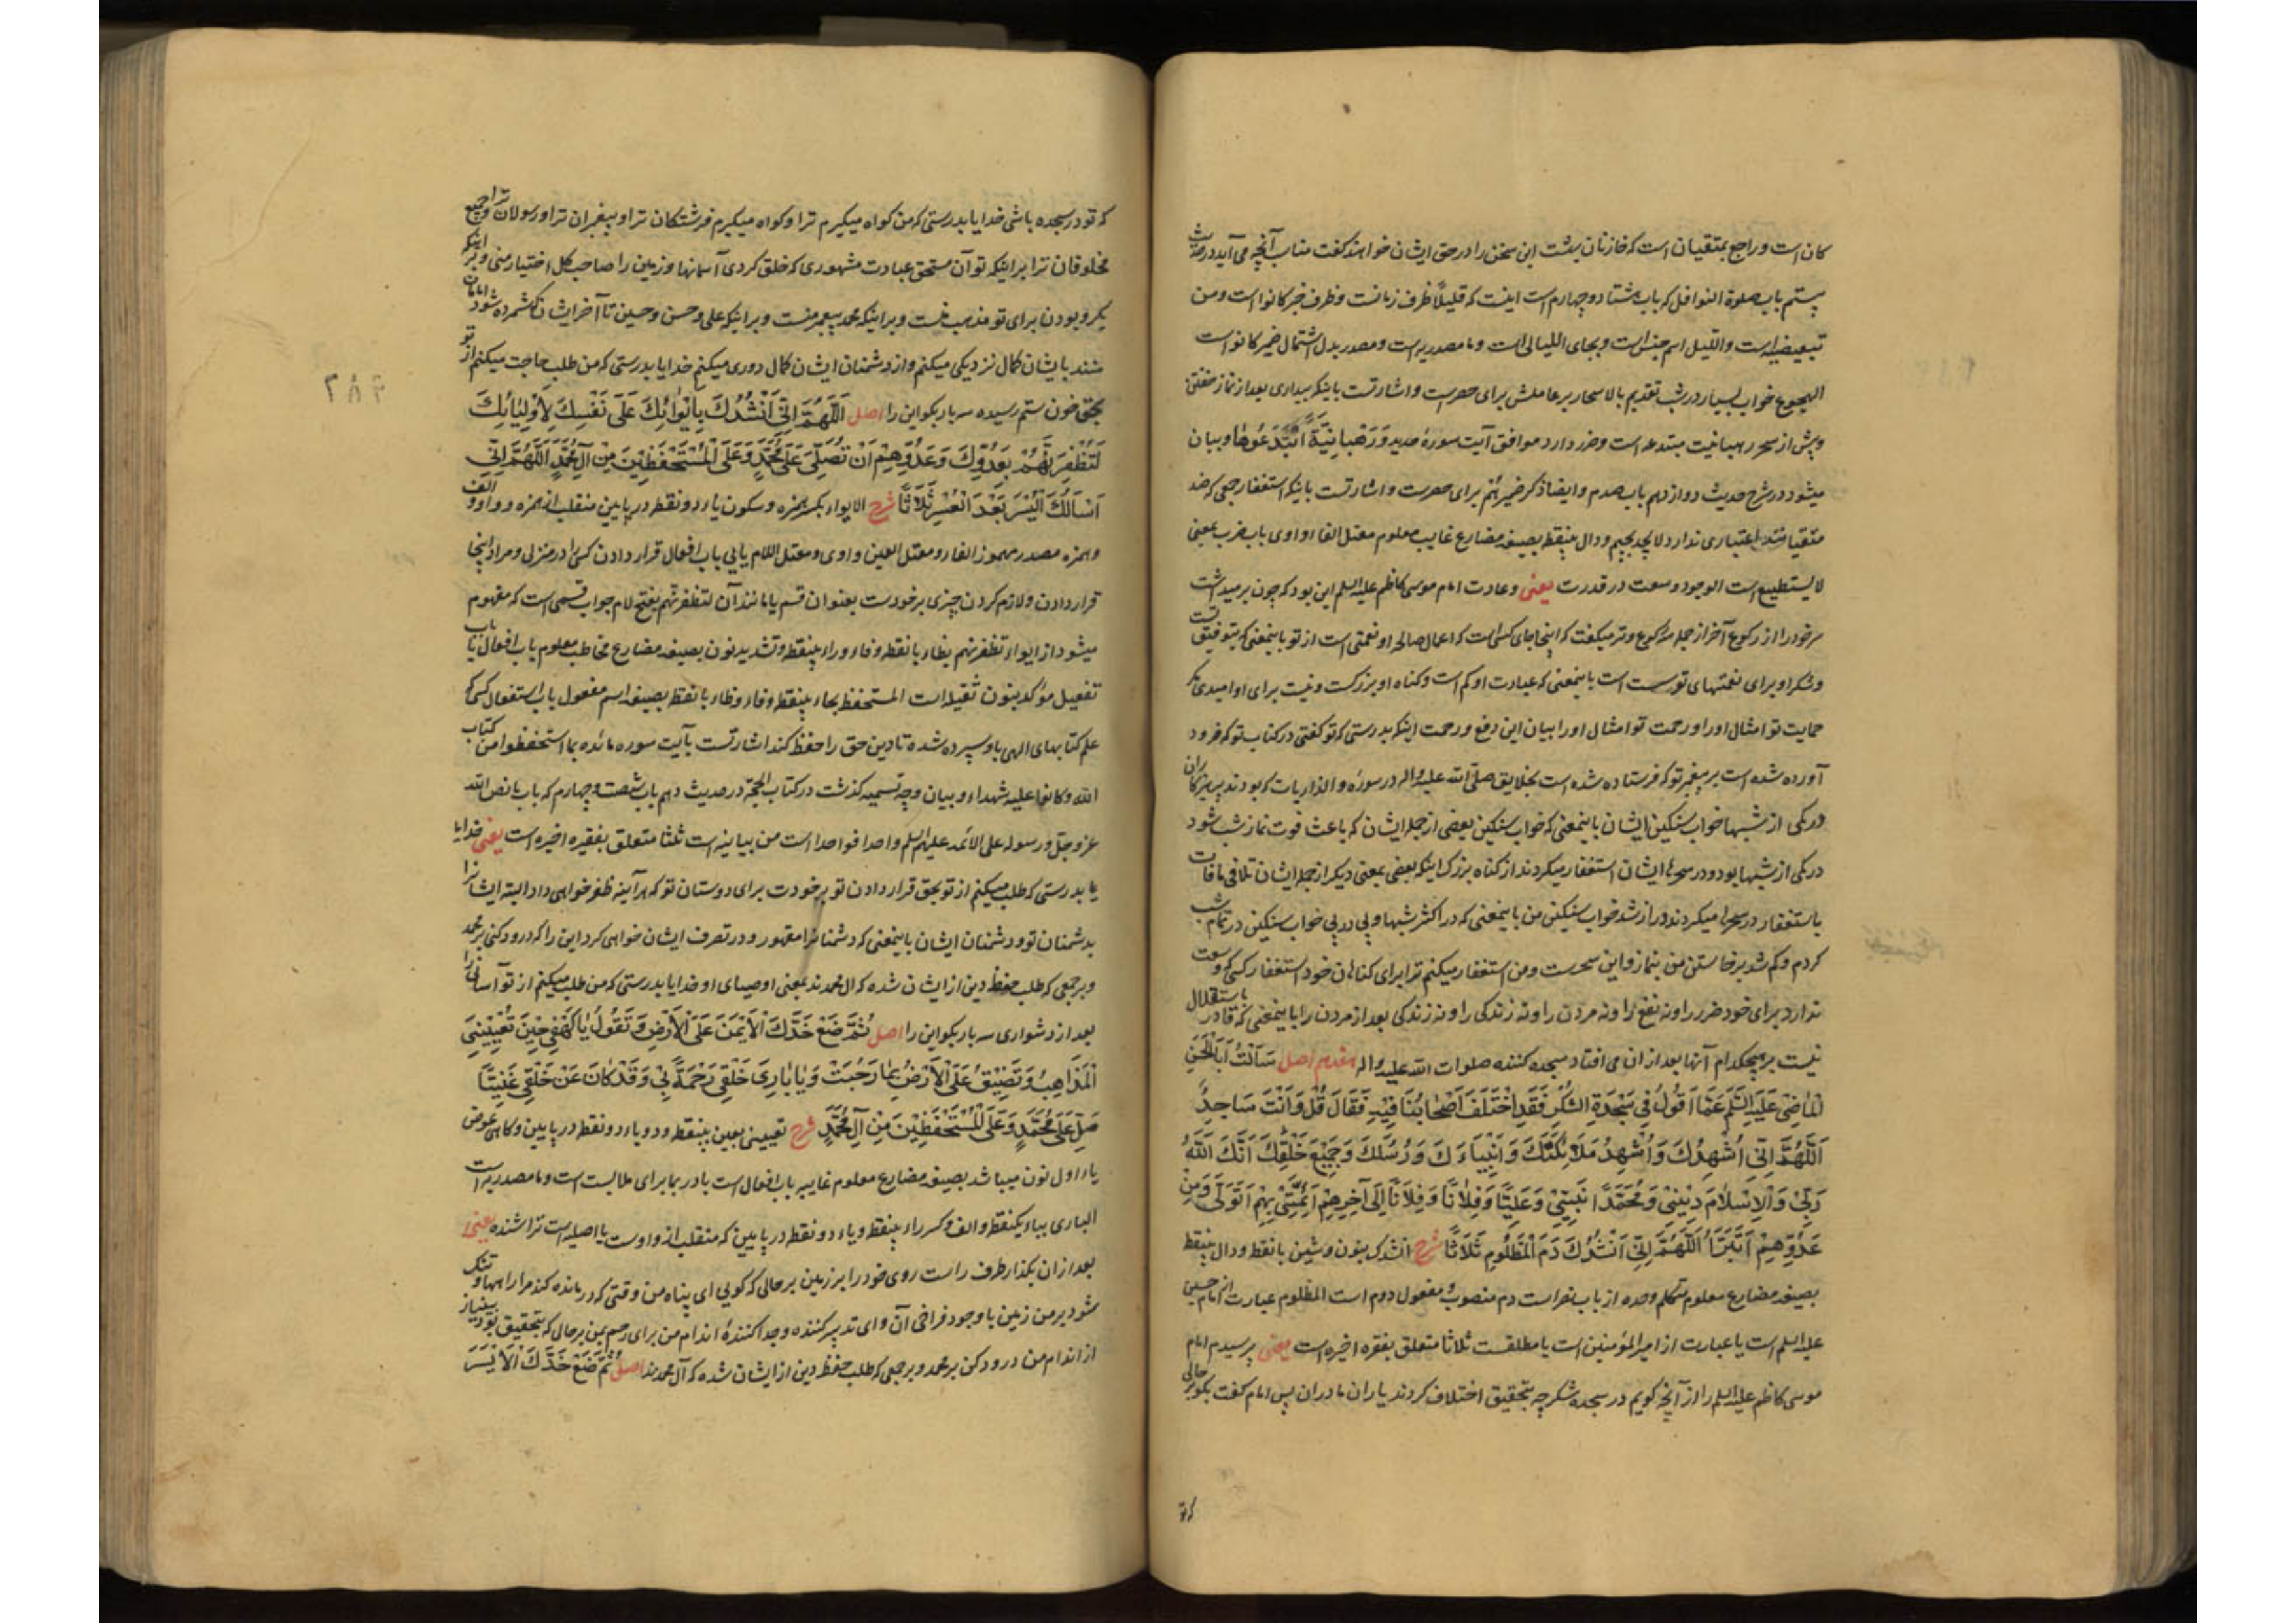 کان است و راجع بمتقیان است که خازنان بهشت این سخن را در حق ایشان خواهند گفت مناسب آنچه می آید در حدیث
بیستم باب صلوة النوافل که باب هشتاد و چهارم است اینست که قلیلاً ظرف زمانست و ظرف خبر کانوا است و من
تبعیضیه است و اللیل اسم جنس است و بجای اللیالی است و ما مصدریه است و مصدر بدل اشتمال ضمیر کانوا است
الهجوع خواب بسیار در شب تقدیم بالاسحار بر عاملش برای حصرست و اشارتست باینکه بیداری بعد از نماز خفتن
و پیش از سحر رهبانیت مبتدعه است و ضرر دارد موافق آیت سورهٔ حدید وَرَهْبانِیَّةً ابْتَدَعُوهَا و بیان
میشود در شرح حدیث دوازدهم باب صدم و ایضاً ذکر ضمیر هُم برای حصرست و اشارتست باینکه استغفار جمعی که ضد
متقیانند اعتباری ندارد لایجد بجیم و دال بینقطه بصیغه مضارع غایب معلوم معتل الفاء واوی باب ضرب بمعنی
لا یستطیع است الوجود وسعت در قدرت یعنی و عادت امام موسی کاظم علیه السلم این بود که چون برمیداشت
سر خود را از رکوع آخر از جمله رکوع وتر میگفت که اینجا جای کسی است که اعمال صالحه او نعمتی است از تو باینمعنی که بتوفیق تست
و شکر او برای نعمتهای تو سست است باینمعنی که عبادت او کم است و گناه او بزرگست و نیست برای او امیدی مگر
حمایت تو امثال او را و رحمت تو امثال او را بیان این دفع و رحمت اینکه بدرستی که تو گفتی در کتاب تو که فرود
آورده شده است بر پیغمبر تو که فرستاده شده است بخلایق صلی الله علیه و اله در سورهٔ و الذاریات که بودند پرهیزکاران
در کمی از شبها خواب سنگین ایشان باینمعنی که خواب سنگین بعضی از جمله ایشان که باعث فوت نماز شب شود
در کمی از شبها بود و در سحرها ایشان استغفار میکردند از گناه بزرگ اینکه بعضی بمعنی دیگر از جمله ایشان تلافی مافات
باستغفار در سحرها میکردند دراز شد خواب سنگین من باینمعنی که در اکثر شبها و پی در پی خواب سنگین در تمام شب
کردم و کم شد برخاستن من بنماز و این سحرست و من استغفار میکنم ترا برای گناهان خود استغفار کسی که وسعت
ندارد برای خود ضرر را و نه نفع را و نه مردن را و نه زندگی را و نه زندگی بعد از مردن را باینمعنی که قادر باستقلال
نیست بر هیچکدام آنها بعد از ان می افتاد سجده کننده صلوات الله علیه و اله هفدهم اصل سَاَلْتُ اَبَا الْحَسَنِ
الْمَاضِی عَلَیْهِ السَّلَمُ عَمَّا اَقُولُ فِی سَجْدَةِ الشُّکْرِ فَقَدِ اخْتَلَفَ اَصْحَابُنَا فِیْهِ فَقَالَ قُلْ وَاَنْتَ سَاجِدٌ
اَللّٰهُمَّ اِنِّی اُشْهِدُكَ وَاُشْهِدُ مَلَائِکَتَكَ وَاَنْبِیَاءَكَ وَرُسُلَكَ وَجَمِیْعَ خَلْقِكَ اَنَّكَ اللّٰهُ
رَبِّیْ وَالْاِسْلَامَ دِیْنِیْ وَمُحَمَّدًا نَبِیِّیْ وَعَلِیًّا وَفُلَانًا وَفُلَانًا اِلَی آخِرِهِمْ اَئِمَّتِیْ بِهِمْ اَتَوَلَّی وَمِنْ
عَدُوِّهِمْ اَتَبَرَّأُ اَللّٰهُمَّ اِنِّی اَنْشُدُكَ دَمَ الْمَظْلُومِ ثَلَاثًا شرح انشدك بنون و شین با نقطه و دال بینقطه
بصیغه مضارع معلوم متکلم وحده از باب نصر است دم منصوب و مفعول دوم است المظلوم عبارت از امام حسین
علیه السلم است یا عبارت از امیر المؤمنین است یا مطلقست ثلاثا متعلق بفقره اخیره است یعنی پرسیدم امام
موسی کاظم علیه السلم را از آنچه گویم در سجده شکر چه بتحقیق اختلاف کردند یاران ما در ان پس امام گفت بگو بر حالی
که تو
که تو در سجده باشی خدایا بدرستی که من گواه میگیرم ترا و گواه میگیرم فرشتگان ترا و پیغمبران ترا و رسولان ترا و جمیع
مخلوقان ترا بر اینکه تو آن مستحق عبادت مشهوری که خلق کردی آسمانها و زمین را صاحب کل اختیار منی و بر اینکه
یکرو بودن برای تو مذهب منست و بر اینکه محمد پیغمبر منست و بر اینکه علی و حسن و حسین تا آخر ایشان که شمرده شود امامان
منند بایشان کمال نزدیکی میکنم و از دشمنان ایشان کمال دوری میکنم خدایا بدرستی که من طلب حاجت میکنم از تو
بحق خون ستم رسیده سه بار بگو این را اصل اَللّٰهُمَّ اِنِّی اَنْشُدُكَ بِاِیْوَائِكَ عَلَی نَفْسِكَ لِاَوْلِیَائِكَ
لَتُظْفِرَنَّهُمْ بِعَدُوِّكَ وَعَدُوِّهِمْ اَنْ تُصَلِّیَ عَلَی مُحَمَّدٍ وَعَلَی الْمُسْتَحْفَظِیْنَ مِنْ آلِ مُحَمَّدٍ اَللّٰهُمَّ اِنِّی
اَسْاَلُكَ الْیُسْرَ بَعْدَ الْعُسْرِ ثَلَاثًا شرح الایواء بکسر همزه و سکون یاء دو نقطه در پایین منقلب از همزه و واو و الف
و همزه مصدر مهموز الفاء و معتل العین واوی و معتل اللام یایی باب افعال قرار دادن کسی را در منزلی و مراد اینجا
قرار دادن و لازم کردن چیزی بر خودست بعنوان قسم یا مانند آن لتظفرنهم بفتح لام جواب قسمی است که مفهوم
میشود از ایواء تظفرنهم بظاء با نقطه و فاء و راء بینقطه و تشدید نون بصیغه مضارع مخاطب معلوم باب افعال یا باب
تفعیل مؤکد بنون ثقیله است المستحفظ بحاء بینقطه و فاء و ظاء با نقطه بصیغه اسم مفعول باب استفعال کسی که
علم کتابهای الهی باو سپرده شده تا دین حق را حفظ کند اشارتست بآیت سوره مائده بما استحفظوا من کتاب
الله و کانوا علیه شهداء و بیان وجه تسمیه گذشت در کتاب الحجة در حدیث دهم باب شصت و چهارم که باب ما نص الله
عز وجل و رسوله علی الائمه علیهم السلم واحدا فواحدا است من بیانیه است ثلثا متعلق بفقره اخیره است یعنی خدایا
یا بدرستی که طلب میکنم از تو بحق قرار دادن تو بر خودت برای دوستان تو که هر آینه ظفر خواهی داد البته ایشانرا
بدشمنان تو و دشمنان ایشان باینمعنی که دشمنانرا مقهور و در تصرف ایشان خواهی کرد این را که درود کنی بر محمد
و بر جمعی که طلب حفظ دین از ایشان شده که ال محمدند بمعنی اوصیای او خدایا بدرستی که من طلب میکنم از تو آسانی را
بعد از دشواری سه بار بگو این را اصل ثُمَّ ضَعْ خَدَّكَ الْاَیْمَنَ عَلَی الْاَرْضِ وَتَقُولُ یَا کَهْفِی حِیْنَ تُعْیِیْنِی
الْمَذَاهِبُ وَتَضِیْقُ عَلَیَّ الْاَرْضُ بِمَا رَحُبَتْ وَیَا بَارِئَ خَلْقِی رَحْمَةً بِی وَقَدْ کَانَ عَنْ خَلْقِی غَنِیًّا
صَلِّ عَلَی مُحَمَّدٍ وَعَلَی الْمُسْتَحْفَظِیْنَ مِنْ آلِ مُحَمَّدٍ شرح تعیینی بعین بینقطه و دو یاء دو نقطه در پایین و گاهی عوض
یاء اول نون میباشد بصیغه مضارع معلوم غایبه باب افعال است باء در بما برای ملابست است و ما مصدریه است
الباری بباء یکنقطه و الف و کسر راء بینقطه و یاء دو نقطه در پایین که منقلب از واوست یا اصلیه است تراشنده یعنی
بعد از ان بگذار طرف راست روی خود را بر زمین بر حالی که گویی ای پناه من وقتی که درمانده کند مرا راهها و تنگ
شود بر من زمین با وجود فراخی آن و ای تدبیر کننده و جدا کنندهٔ اندام من برای رحم بمن بر حالی که بتحقیق بود بینیاز
از اندام من درود کن بر محمد و بر جمعی که طلب حفظ دین از ایشان شده که آل محمدند اصل ثُمَّ ضَعْ خَدَّكَ الْاَیْسَرَ